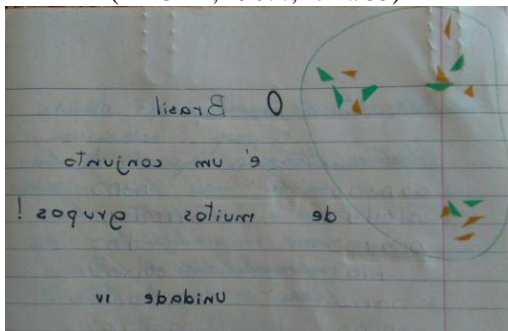 O Brasil
é um conjunto
de muitos grupos!
Unidade IV